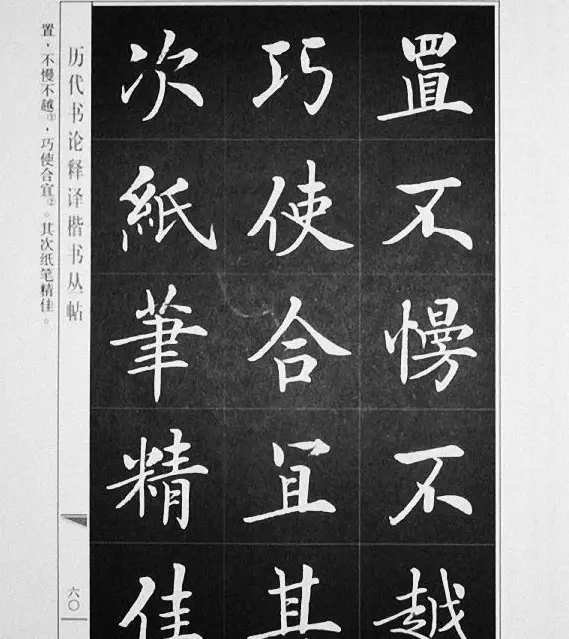 置不慢不越
巧使合宜其
次紙筆精佳
历代书论释译楷书丛帖
六〇
置，不慢不越①，巧使合宜②。其次纸笔精佳。